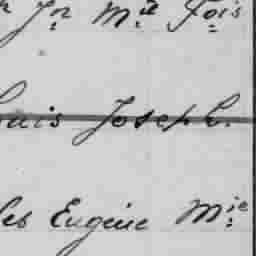 Jn Mie Fois
ouis Joseph.
les Eugène Mie